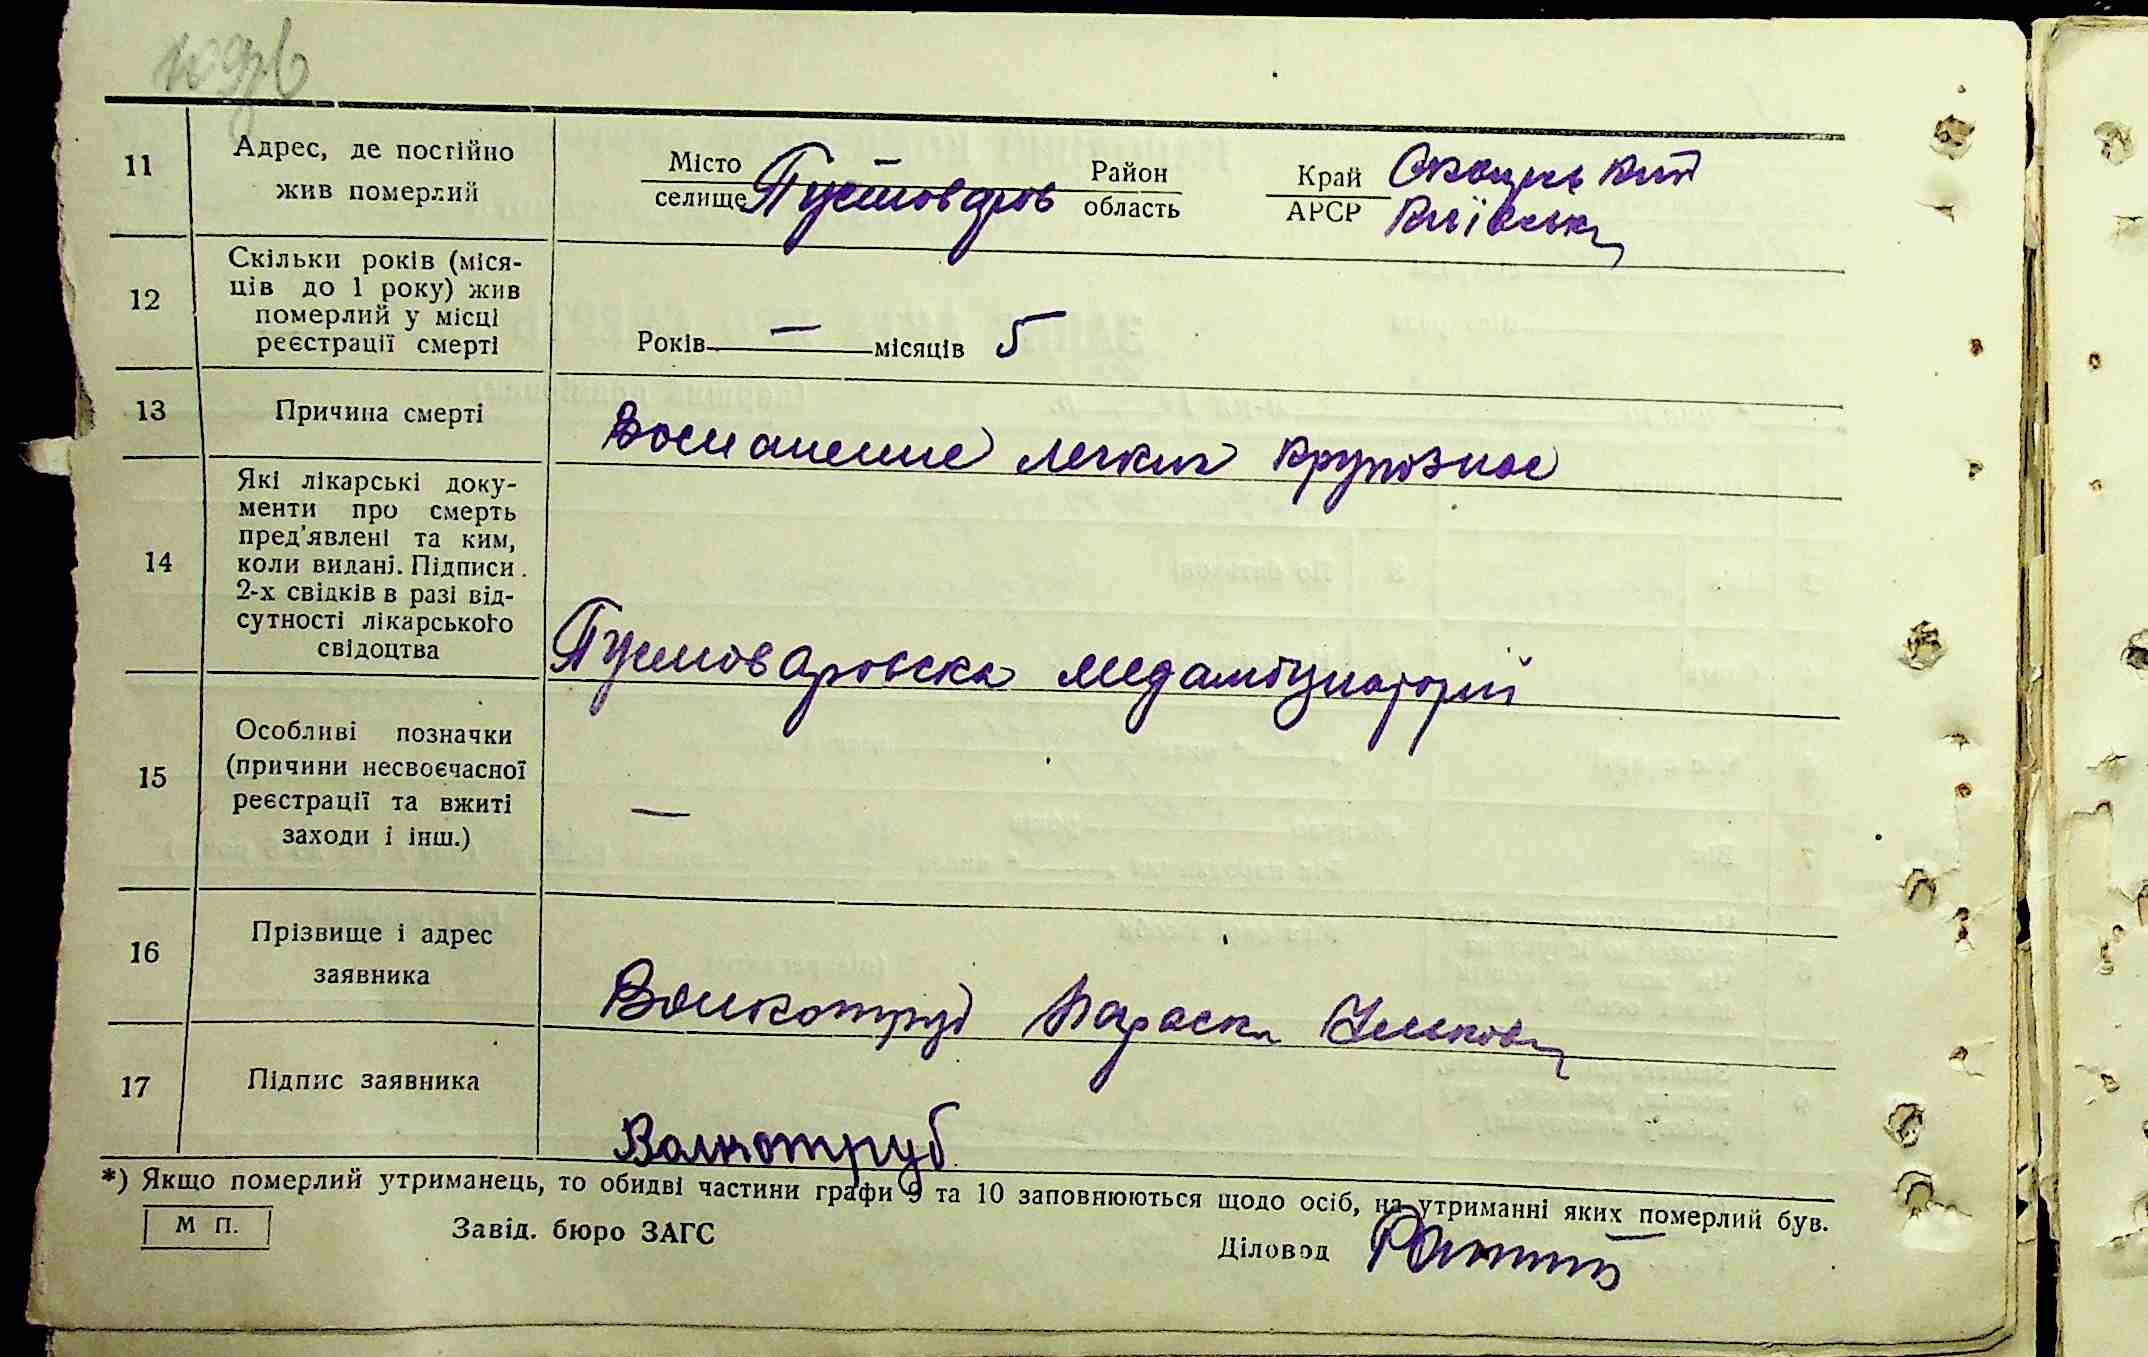 11
Адрес, де постійно
жив померлий
Місто
селище
Пустовáров
Район
область
Край
АРСР
Київськ
12
Скільки років (міся-
ців до 1 року) жив
померлий у місці
реєстрації смерті
Років — місяців 5
13
Причина смерті
Воспаление легких крупозное
14
Які лікарські доку-
менти про смерть
пред'явлені та ким,
коли видані. Підписи
2-х свідків в разі від-
сутності лікарського
свідоцтва
Пустоваровска медамбулаторій
15
Особливі позначки
(причини несвоєчасної
реєстрації та вжиті
заходи і інш.)
—
16
Прізвище і адрес
заявника
Волкотруб Параска
17
Підпис заявника
Волкотруб
*) Якщо померлий утриманець, то обидві частини графи 9 та 10 заповнюються щодо осіб, на утриманні яких померлий був.
М П.
Завід. бюро ЗАГС
Діловод